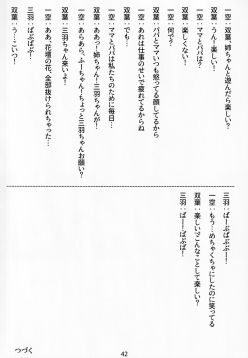 一空：双葉、姉ちゃんと遊んだら楽しい？
双葉：うん！楽しい！
一空：ママとパパは？
双葉：楽しくない！
一空：何で？
双葉：パパとママいつも怒ってる顔してるから
一空：あれは仕事のせいで疲れてるからね
双葉：でも…
一空：ママとパパは私たちのために毎日…
双葉：ああっ！姉ちゃん！三羽ちゃんが！
一空：あらあら、ふーちゃん！ちょっと三羽ちゃんお願い？
双葉：三羽ちゃん来いよ！
一空：ああ、花壇の花、全部抜けられちゃった…
三羽：ばぶばぶ！
双葉：う…こいつ！
三羽：ばーぶばぶばぶ！
一空：もう…めちゃくちゃにしたのに笑ってる
双葉：楽しい？こんなことして楽しい？
三羽：ばーばぶば！
つづく
42